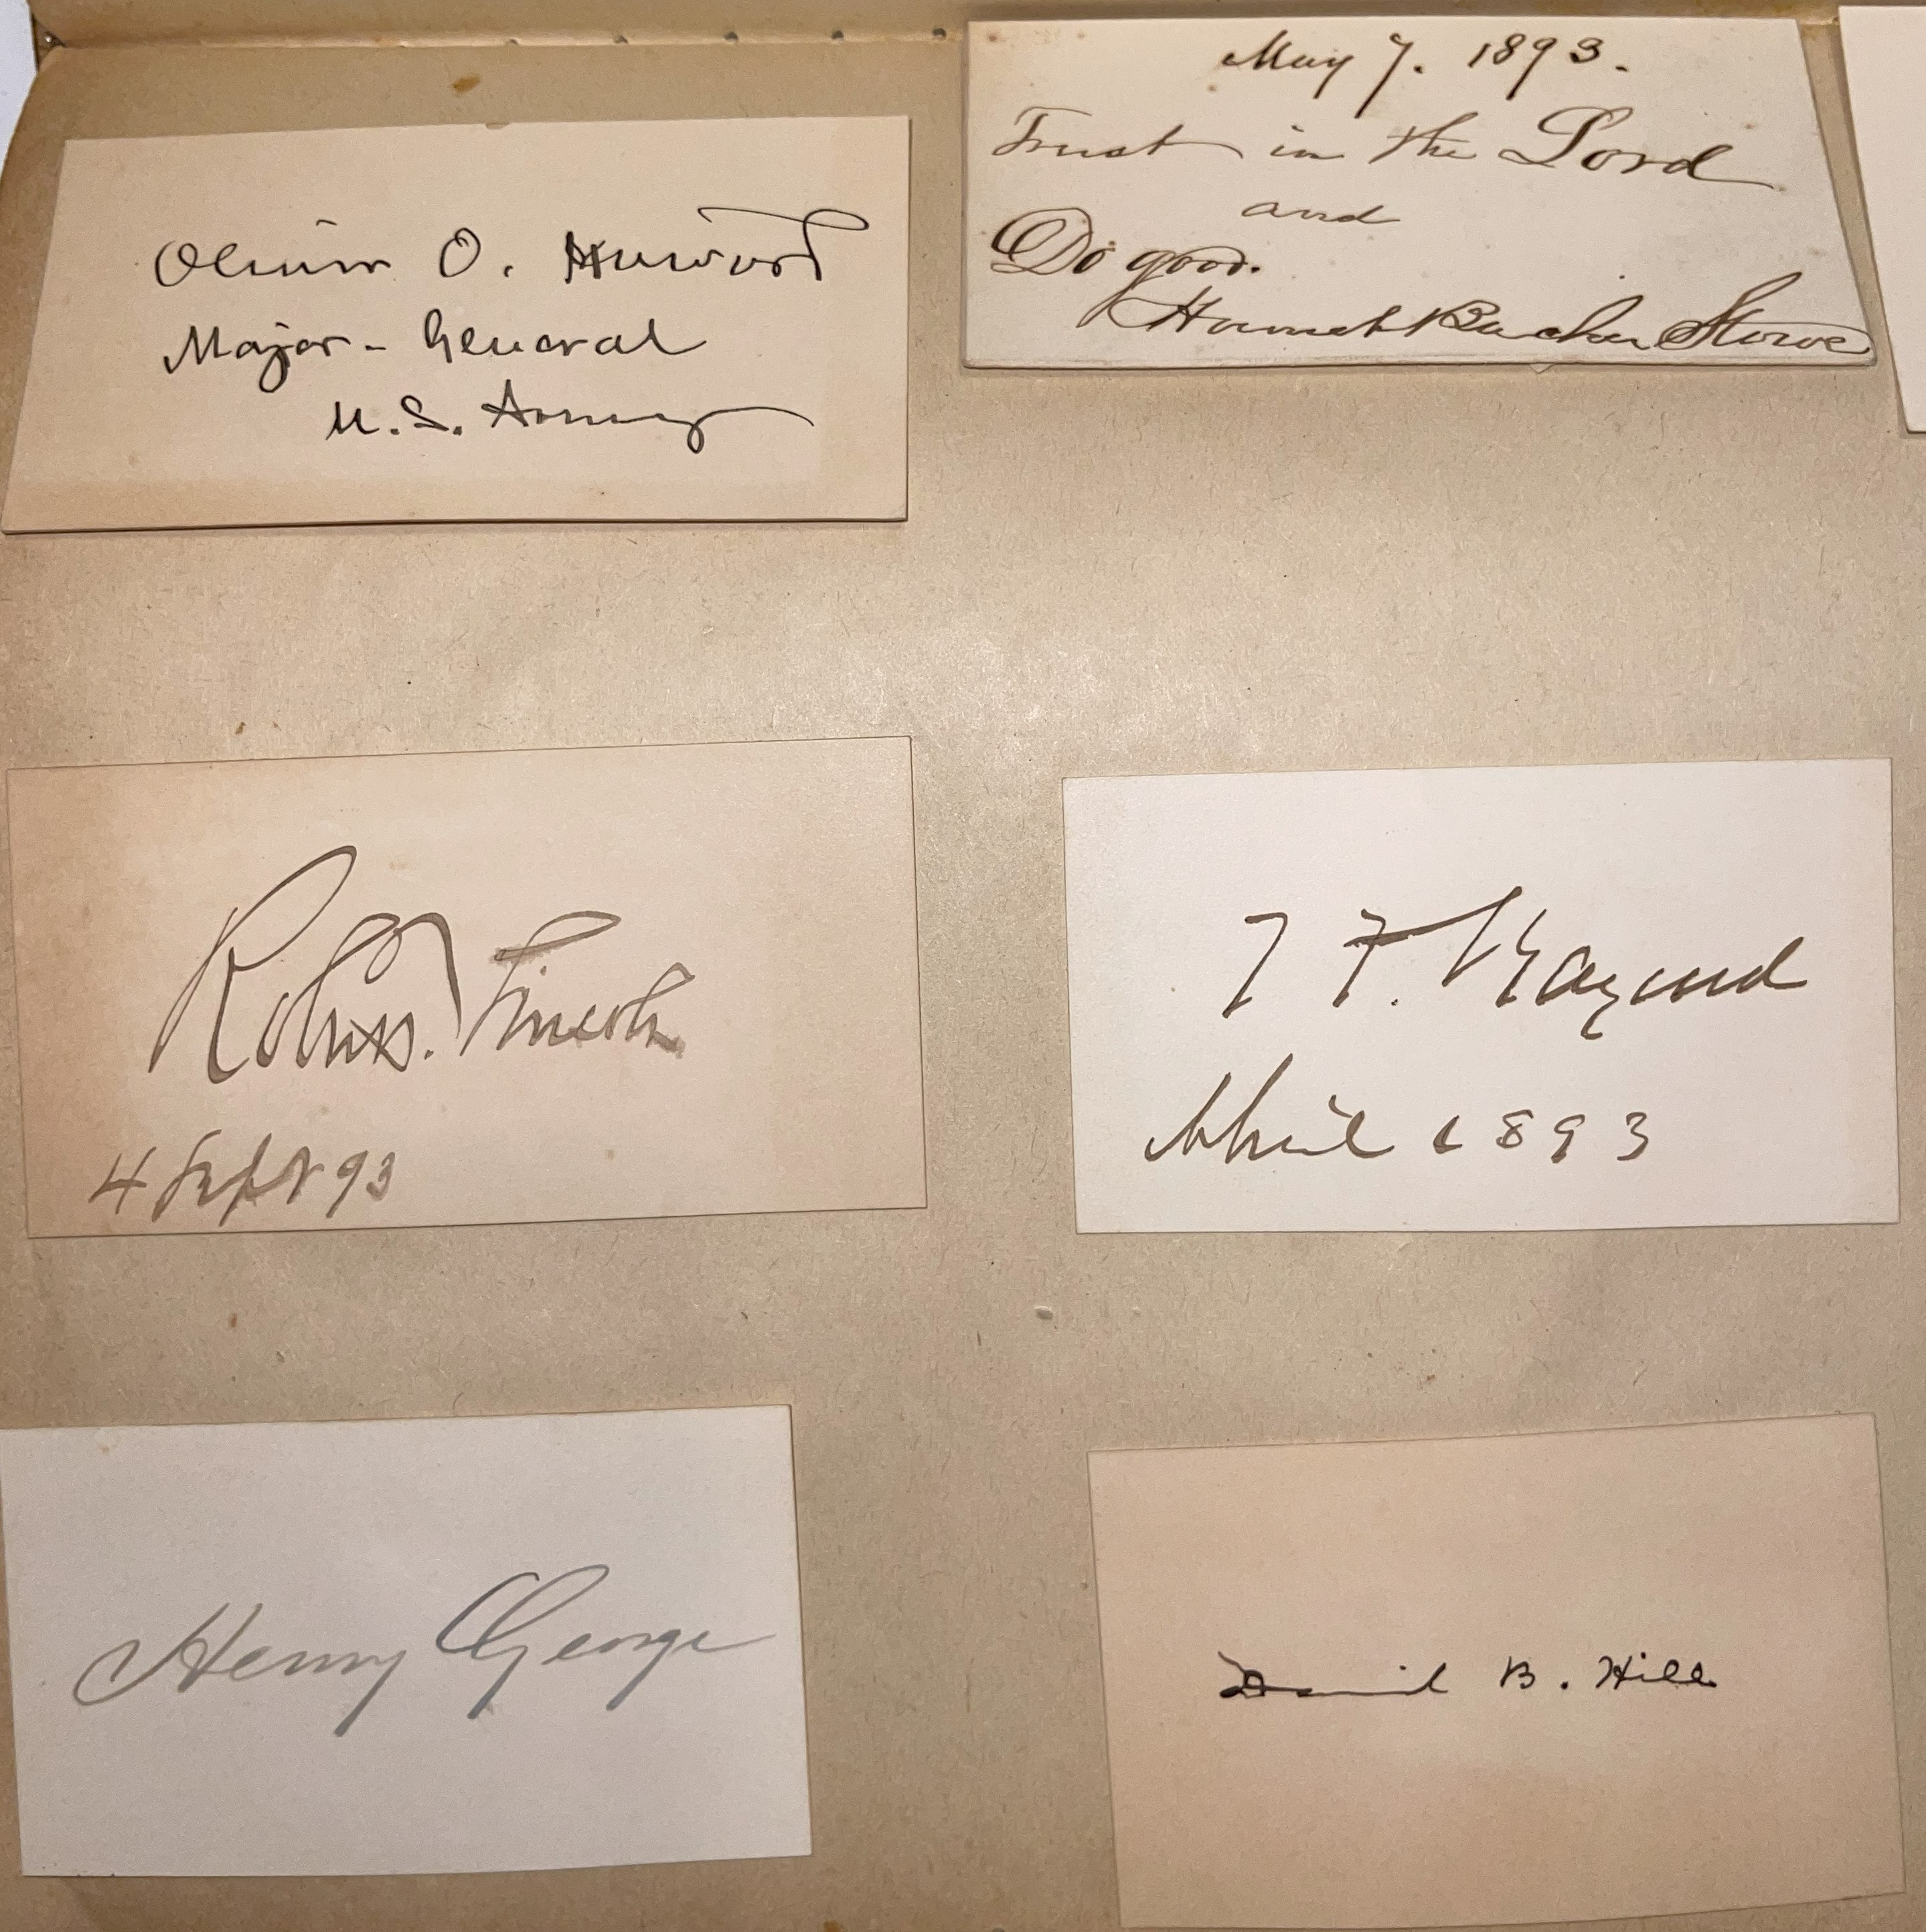 Oliver O. Howard
Major-General
U.S. Army
May 7. 1893.
Trust in the Lord
and
Do good.
Harriet Beecher Stowe
Robt. Lincoln
4 Sept 93
T F. Bayard
April 1893
Henry George
David B. Hill